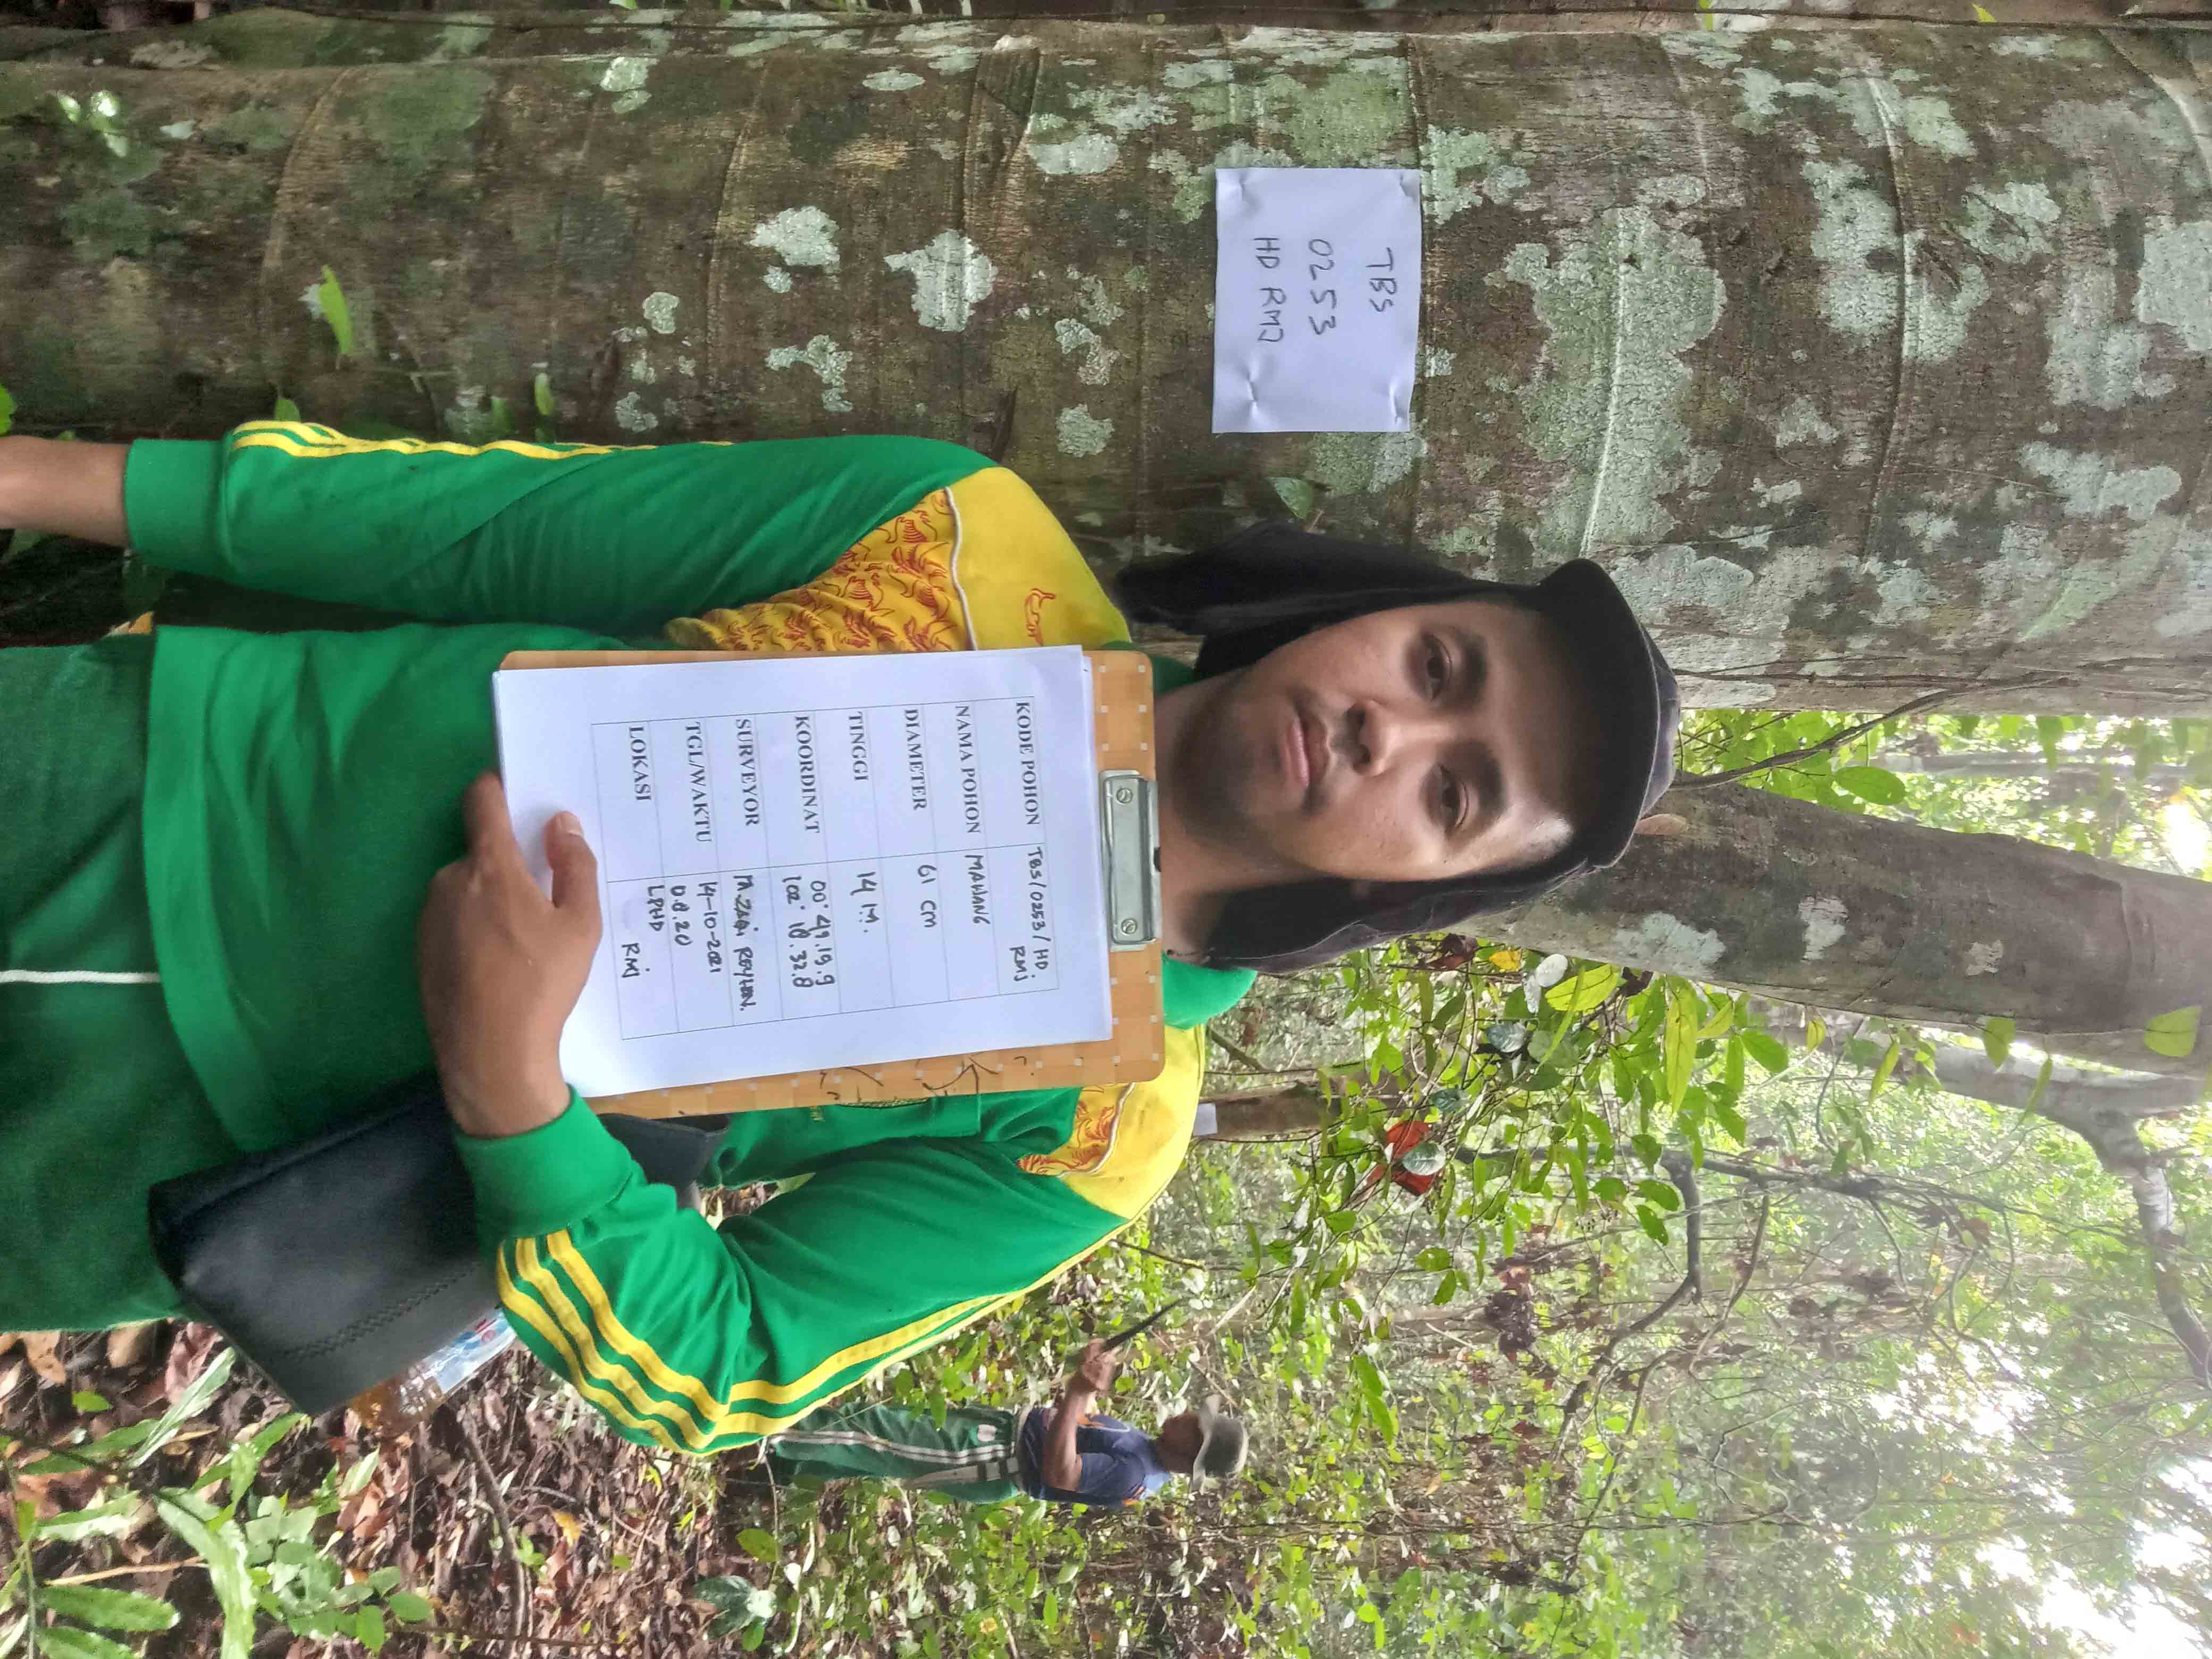 TBS
0253
HD RMJ
KODE POHON TBS/0253/HD.
RMJ
NAMA POHON MAWANG
DIAMETER 61 cm
TINGGI 14 M.
KOORDINAT 00° 49.19.9
102° 18.32.8
SURVEYOR
TGL/WAKTU 14-10-2021
08.20
LOKASI LPHD
RMJ